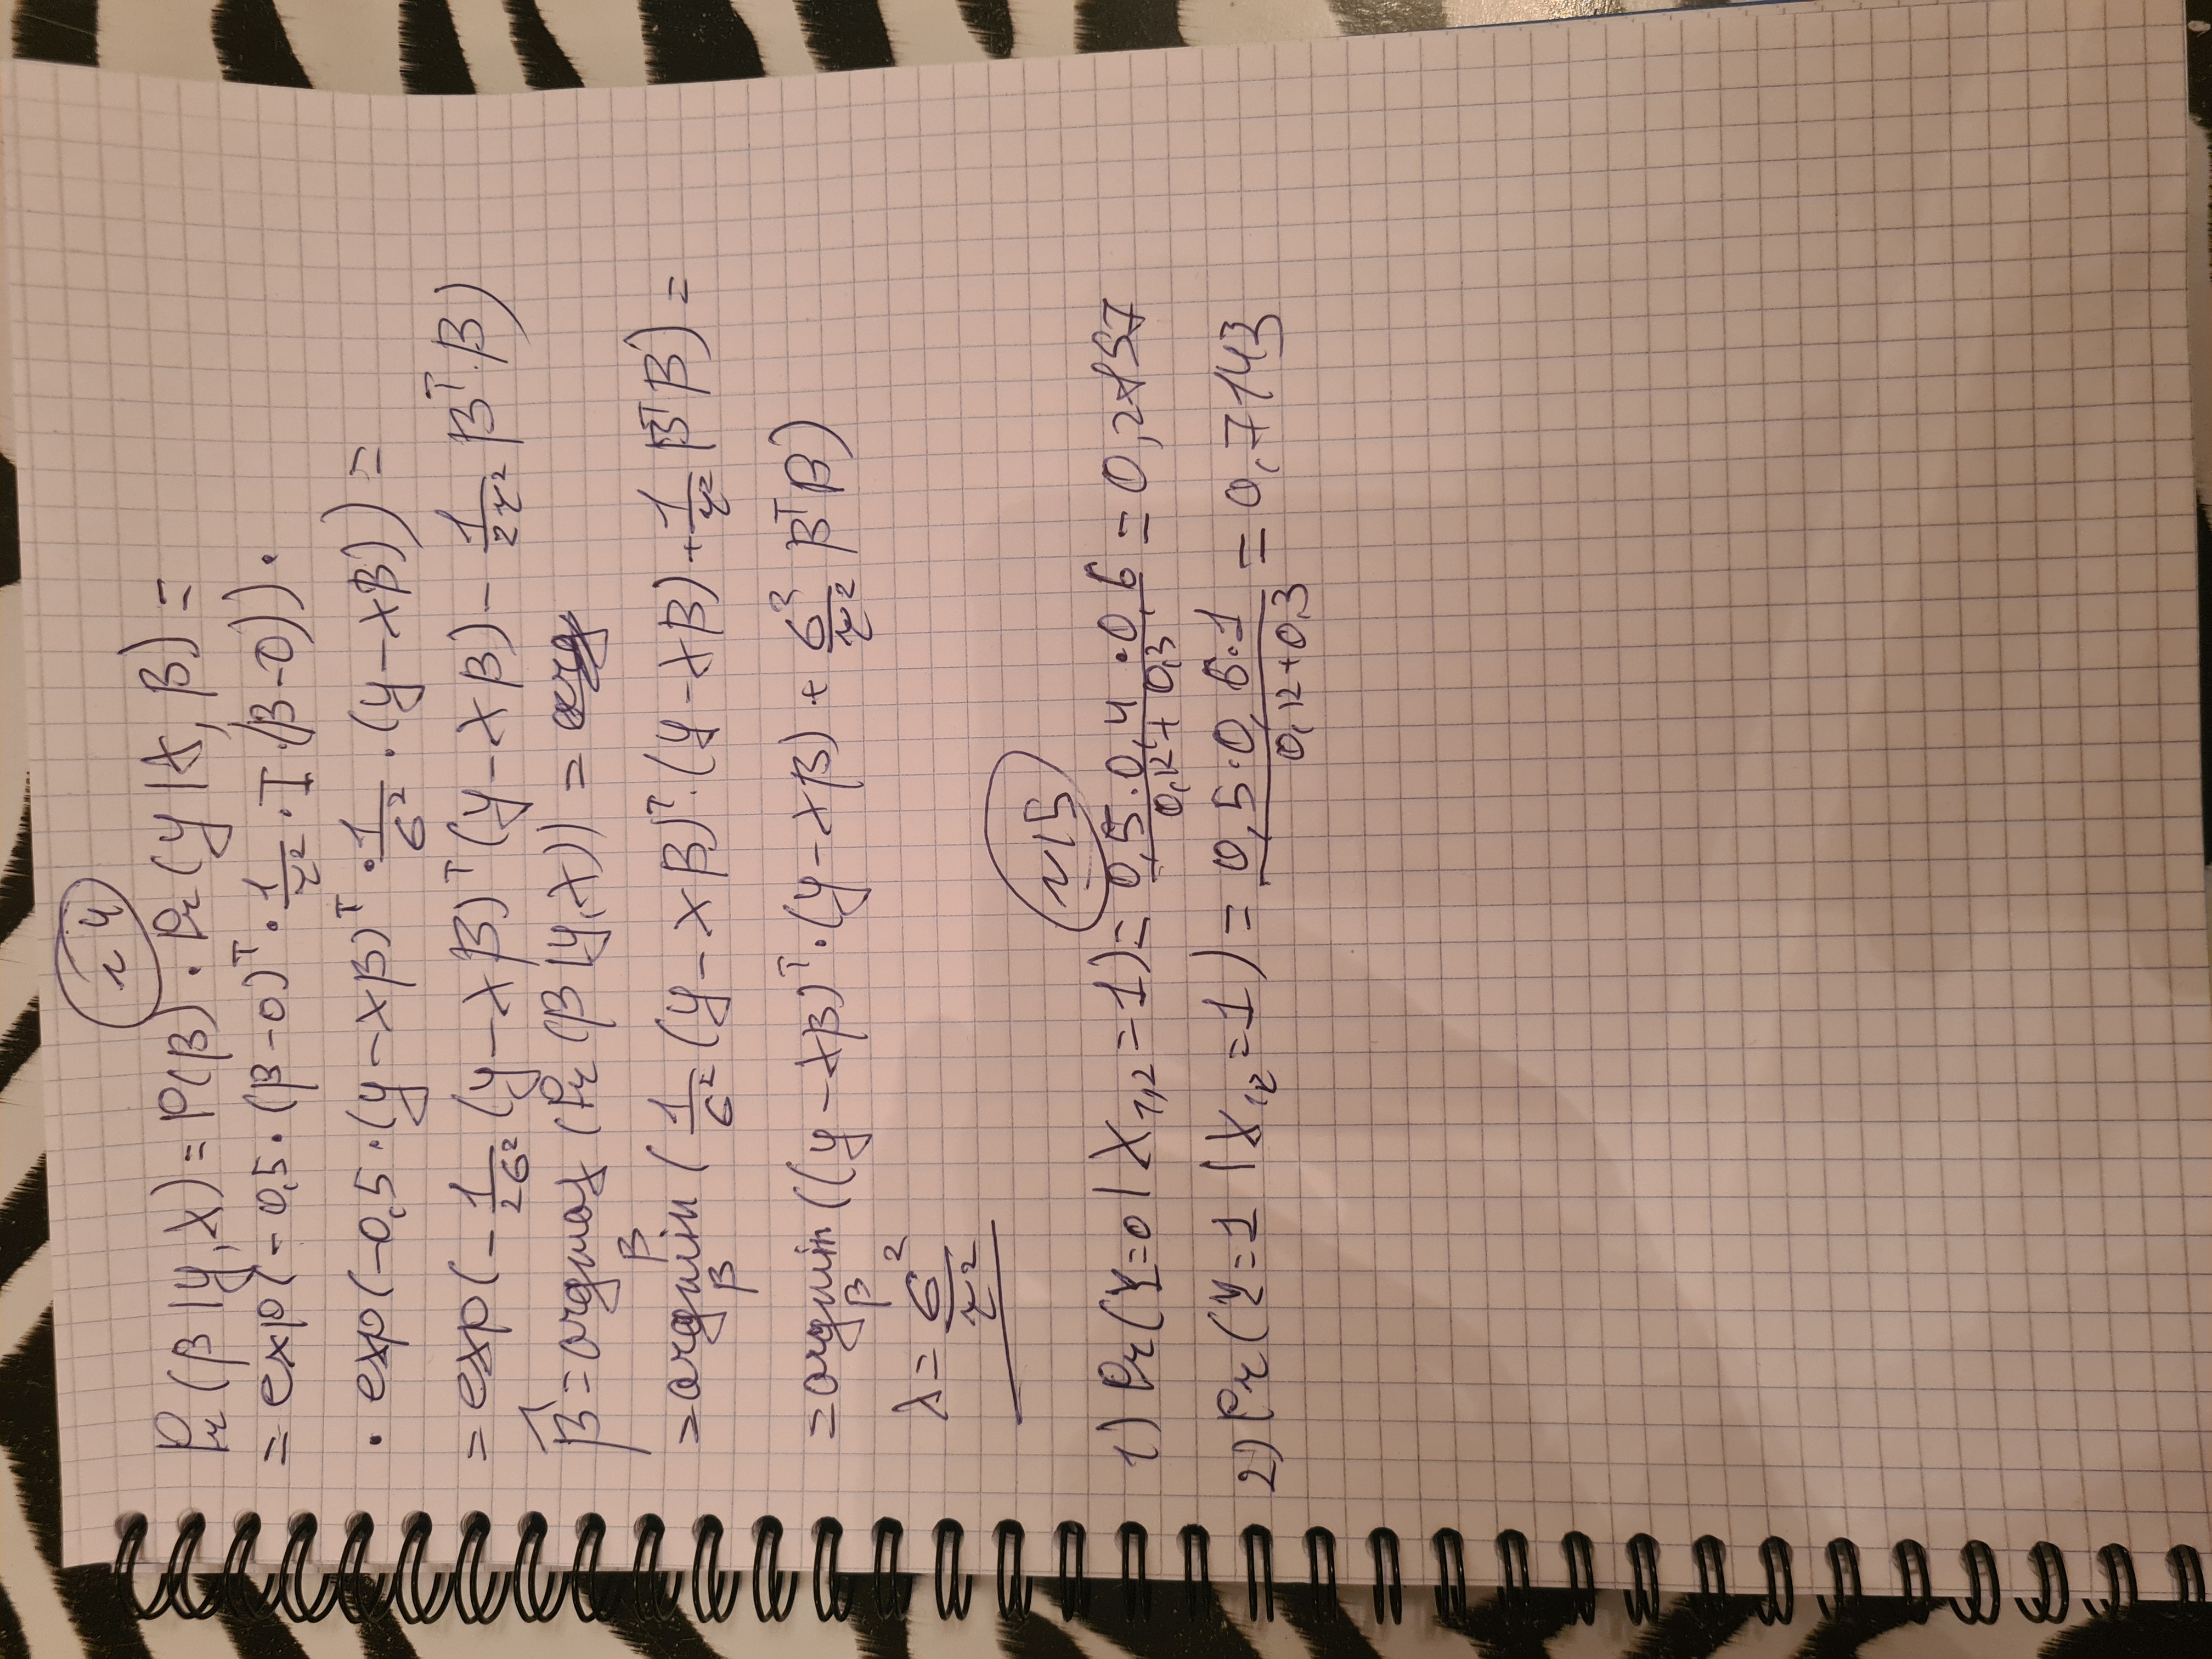 ~4
Pr(β|y,X) = P(β) · Pr(y|X, β) =
= exp(-0,5·(β-0)ᵀ · 1/τ² · I·(β-0)) ·
· exp(-0,5·(y-Xβ)ᵀ · 1/σ² · (y-Xβ)) =
= exp(-1/2σ² (y-Xβ)ᵀ(y-Xβ) - 1/2τ² βᵀ·β)
β̂ = argmax (Pr(β|y,X)) =
β
= argmin (1/σ² (y-Xβ)ᵀ·(y-Xβ) + 1/τ² βᵀβ) =
β
= argmin ((y-Xβ)ᵀ·(y-Xβ) + σ²/τ² βᵀβ)
β
λ = σ²/τ²
~15
1) Pr(Y=0 | X₁,₂ = 1) = 0,5·0,4·0,6 / 0,12+0,3 = 0,2857
2) Pr(Y=1 | X₁,₂ = 1) = 0,5·0,6·1 / 0,12+0,3 = 0,7143